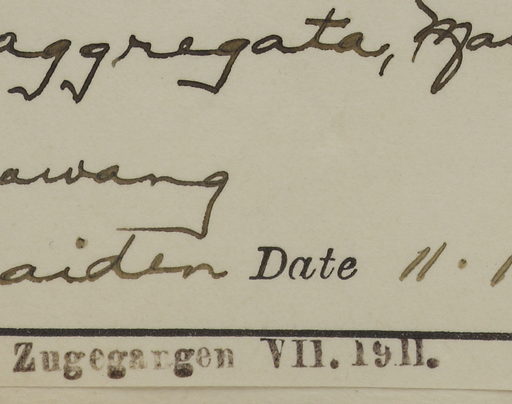 aggregata, Ma
awang
aiden Date 11. 1
Zugegangen VII. 1911.